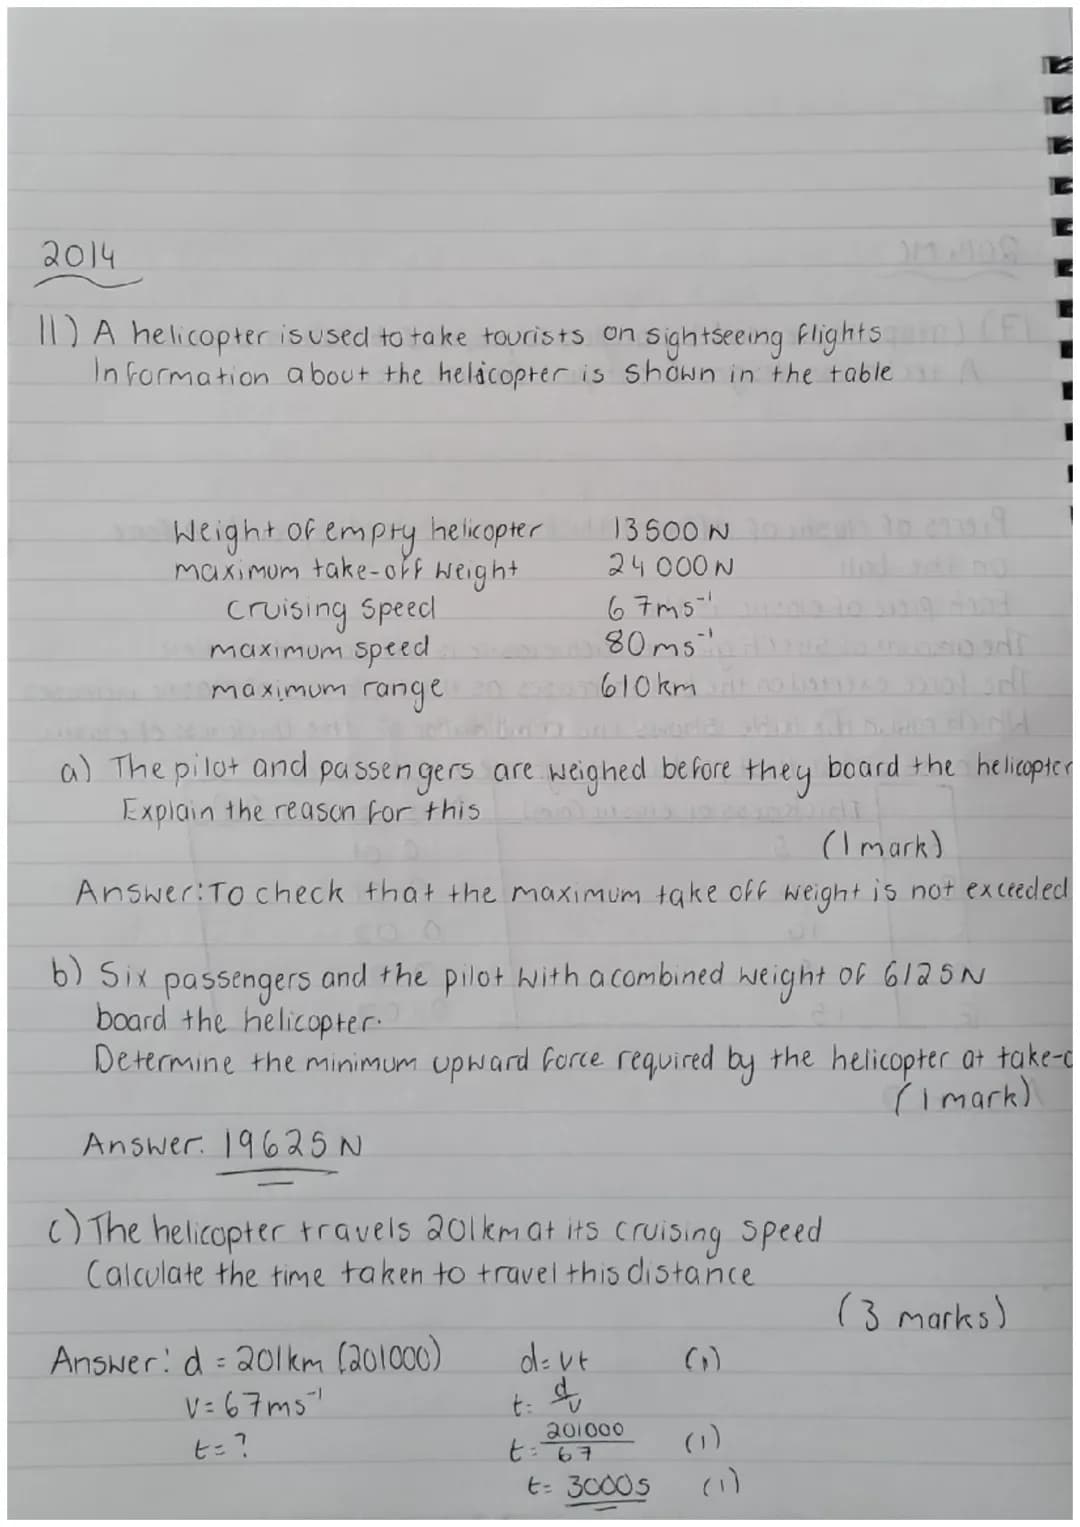 2014
11) A helicopter is used to take tourists on sightseeing flights
Information about the helicopter is shown in the table
Weight of empty helicopter 13500 N
maximum take-off weight 24 000 N
cruising speed 67ms⁻¹
maximum speed 80ms⁻¹
maximum range 610km
a) The pilot and passengers are weighed before they board the helicopter
Explain the reason for this
(1 mark)
Answer: To check that the maximum take off weight is not exceeded
b) Six passengers and the pilot with a combined weight of 6125N
board the helicopter.
Determine the minimum upward force required by the helicopter at take-
(1 mark)
Answer. 19625 N
c) The helicopter travels 201km at its cruising speed
Calculate the time taken to travel this distance
(3 marks)
Answer: d = 201km (201000) d=vt (1)
v=67ms⁻¹ t= d/v
t=? t= 201000/67 (1)
t= 3000s (1)